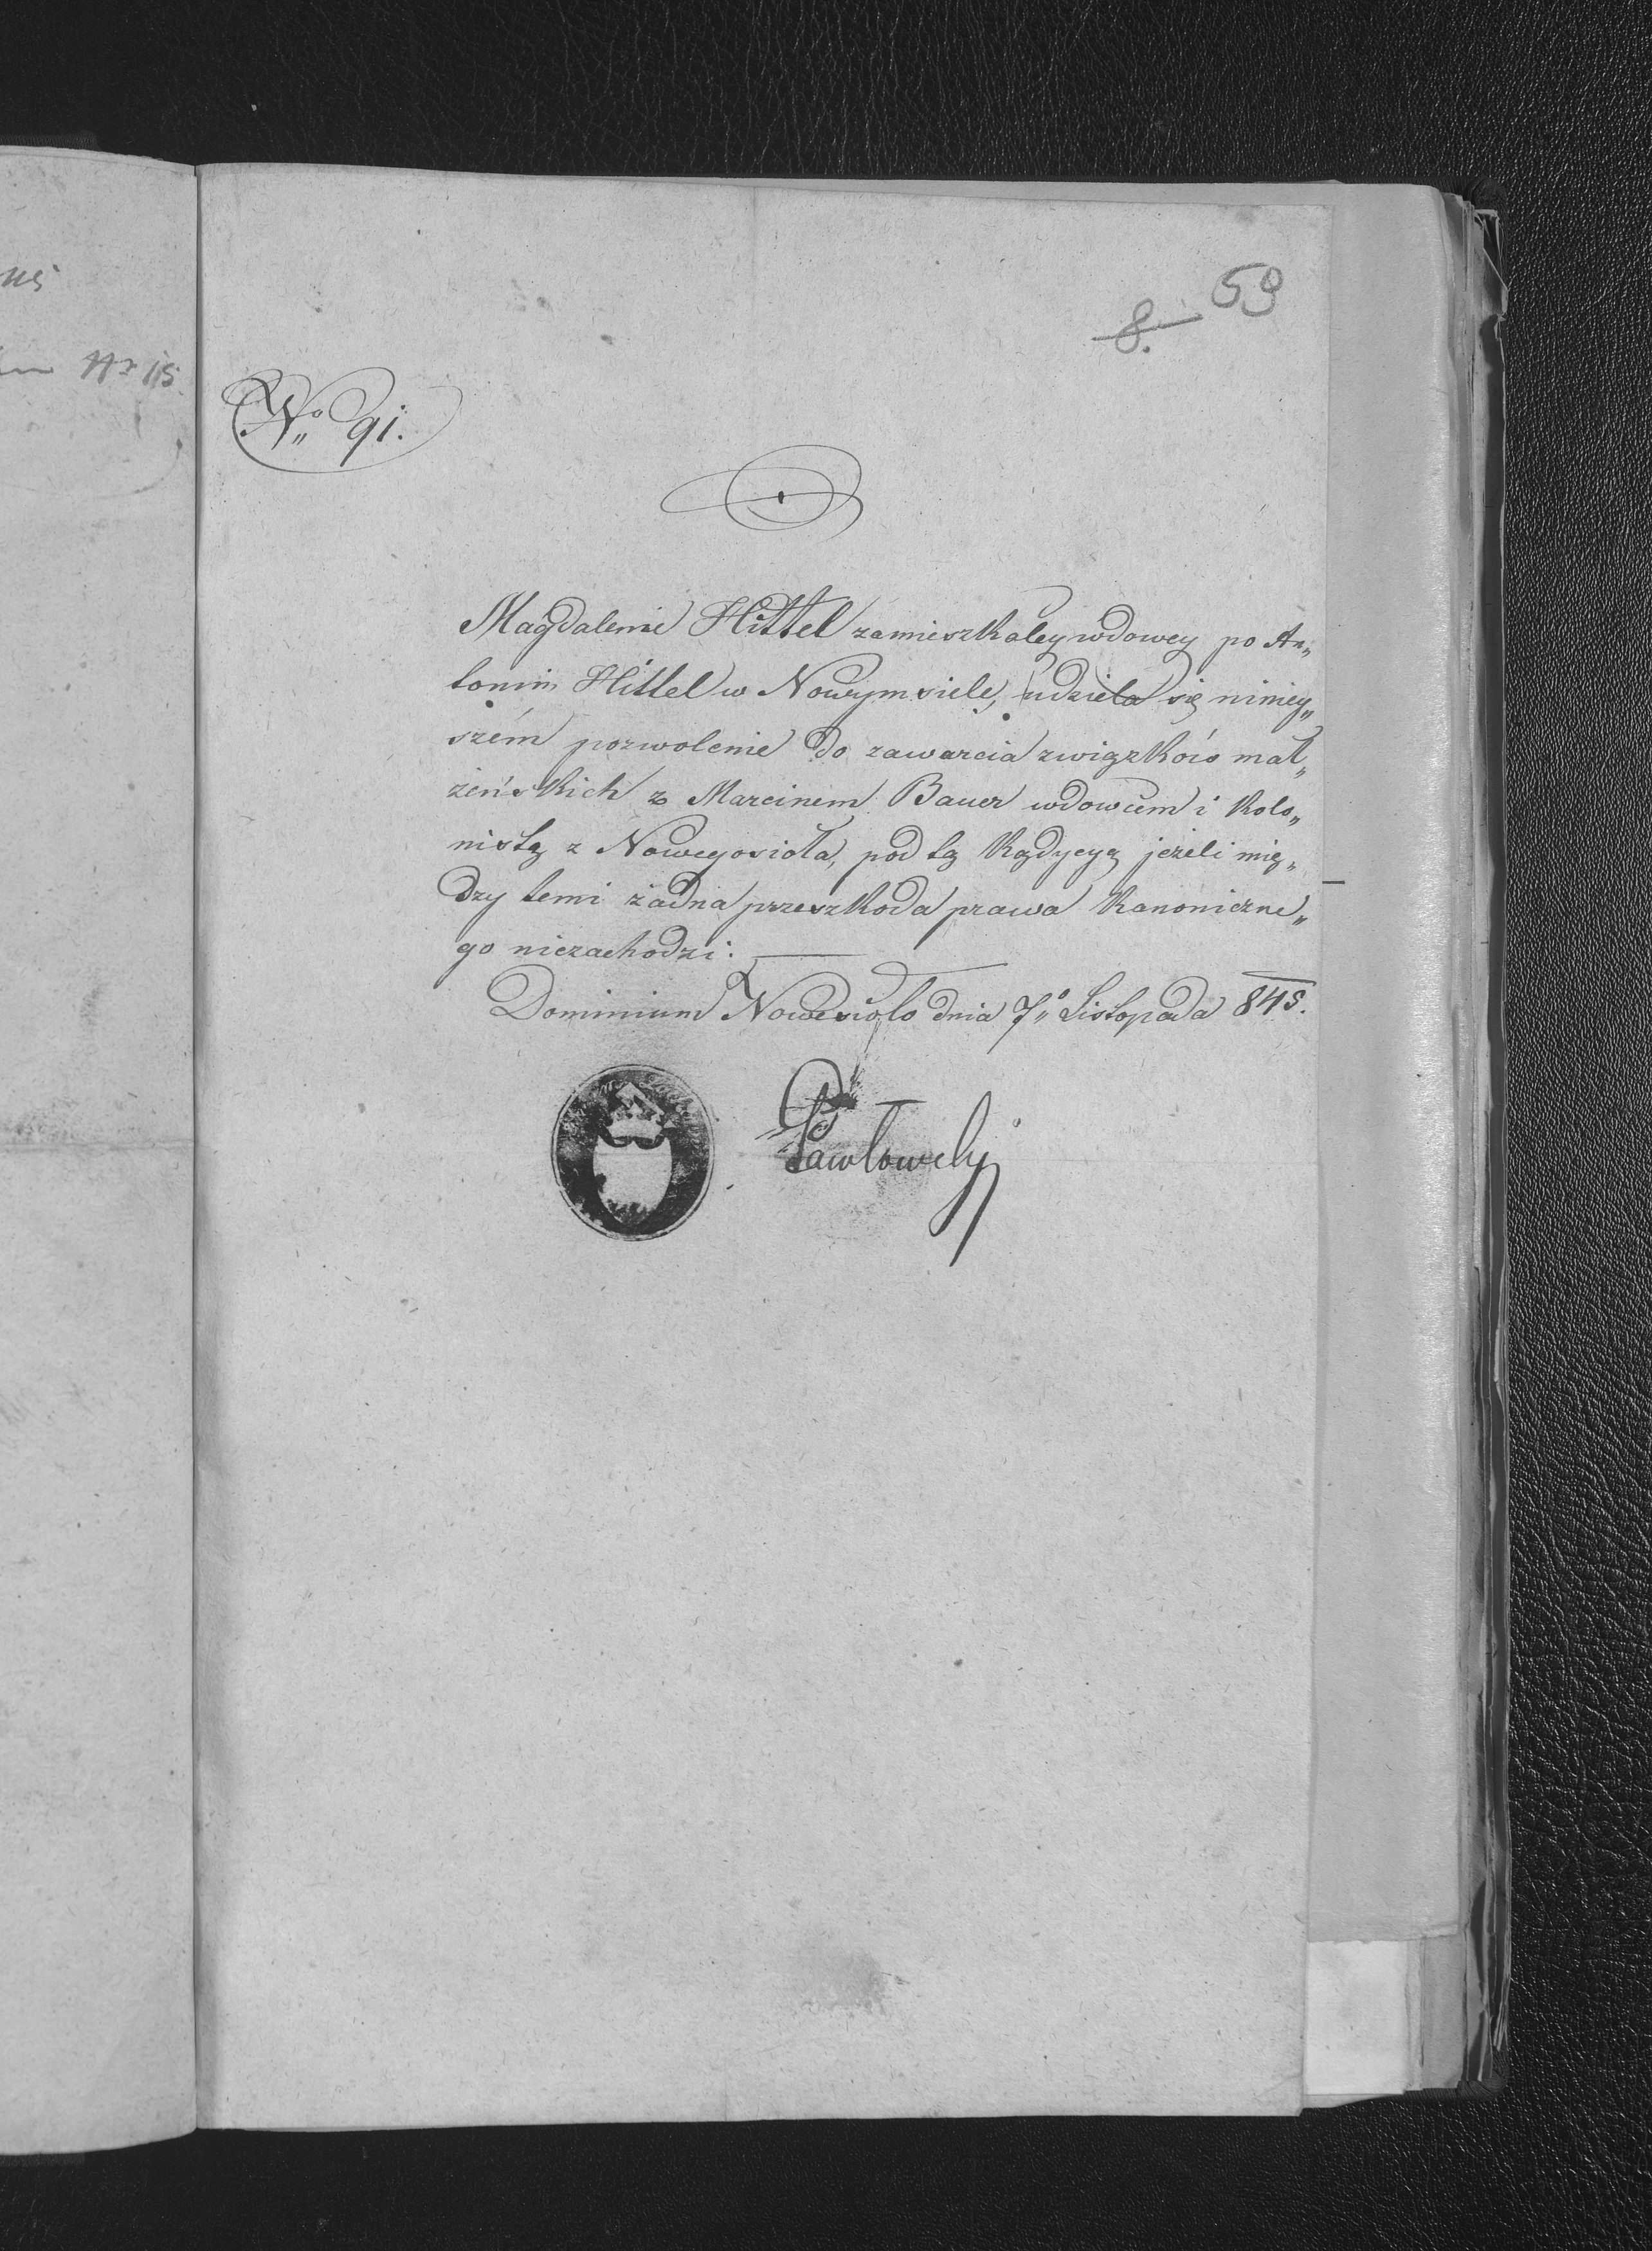 us
Nr 115.
59
8.
No 91.
Magdalenie Hittel zamieszkałey wdowey po An„
tonim Hittel w Nowymsiele, udziela się niniey„
szém pozwolenie do zawarcia związków mał„
żeńskich z Marcinem Bauer wdowcem i kolo„
nistą z Nowegosioła, pod tą kądycyą jeżeli mię„
dzy temi żadna przeszkoda prawa kanoniczne„
go niezachodzi.
Dominium Nowesioło dnia 7o Listopada 845.